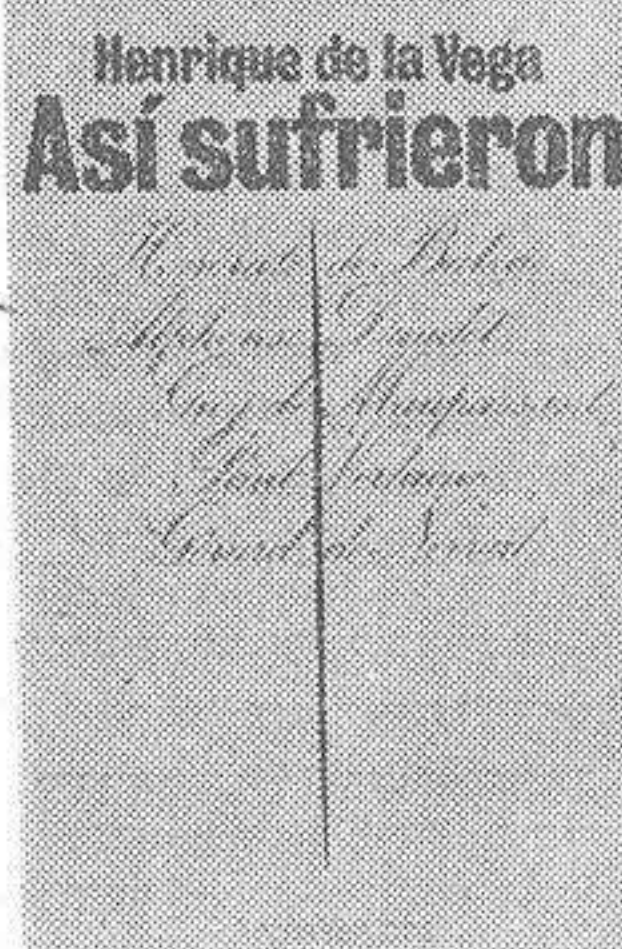 Henrique de la Vega
Así sufrieron
Honoré de Balzac
Alphonse Daudet
Guy de Maupassant
Paul Verlaine
Gérard de Nerval